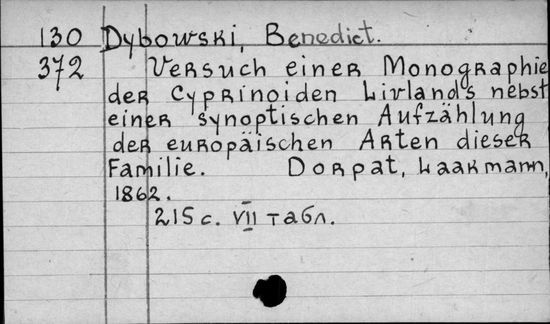 130 Dybowski, Benedict.
372 Versuch einer Monographie
der Cyprinoiden Livlands nebst
einer synoptischen Aufzählung
der europäischen Arten dieser
Familie. Dorpat, Laakmann,
1862.
215 с. VII табл.